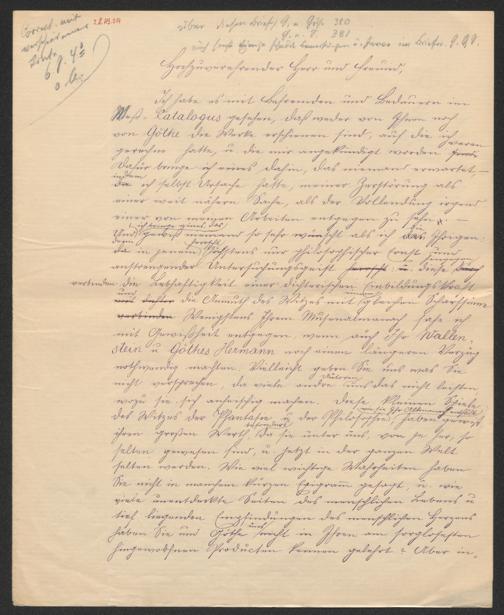 Correct. mit
über diesen Brief S. u. Göthe 380
Hochzuverehrender Herr und Freund,
Ich habe es mit Befremden und Bedauern im
Meß-Catalogus gesehen, daß weder von Ihnen noch
von Göthe die Werke erschienen sind, auf die ich
gerechnet hatte, u die mir angekündigt worden waren.
Dafür bringe ich eines dahin, das niemand erwartet,
ich selbst Ursache hatte, meiner Zerstörung als
einer weit nähern Sache, als der Vollendung irgend
einer von meinen Arbeiten entgegen zu sehn. —
niemand so sehr wünscht als ich das Ihrigen.
da in jenem höchstens nur philosophischer Ernst und
anstrengender Untersuchungsgeist herrscht, u. diese
verbinden die Lebhaftigkeit einer dichterischen Einbildungskraft
und die Anmuth des Witzes mit gleichem Scharfsinne
verbinden. Wenigstens Ihrem Musenalmanach sehe ich
mit Gewißheit entgegen, wenn auch Ihr Wallen-
stein u Göthes Hermann noch einen längeren Verzug
nothwendig machten. Vielleicht geben Sie uns was Sie
nicht versprochen, da viele andre Autoren uns das nicht leisten
wozu sie sich anheischig machen. Diese kleinen Spiele
des Witzes der Phantasie u der Philosophie, haben gewiß
ihren großen Werth, da sie unter uns, von je her, so
selten gewesen sind, u jetzt in der ganzen Welt
selten werden. Wie viel wichtige Wahrheiten haben
Sie nicht in manchem kurzen Epigram gesagt, u. wie
viele unentdeckte Seiten des menschlichen Lebens u
tief liegenden Empfindungen des menschlichen Herzens
haben Sie und Göthe uns nicht in Ihren am sorglosesten
hingeworfnen Producten kennen gelehrt? Aber in-